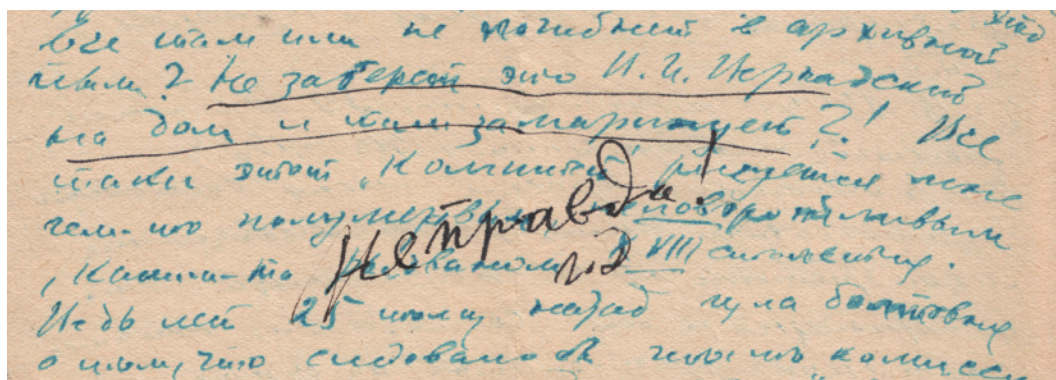 все там или не погибнет в архивной
пыли? Не заберет это И. И.
на дом и там замаринует?! Все
таки этот "Комитет" рисуется мне
чем-то полумертвым, неповоротливым
, каким-то VIII столетия.
Неправда!
Ведь лет 25 тому назад шла болтовня
о том, что следовало